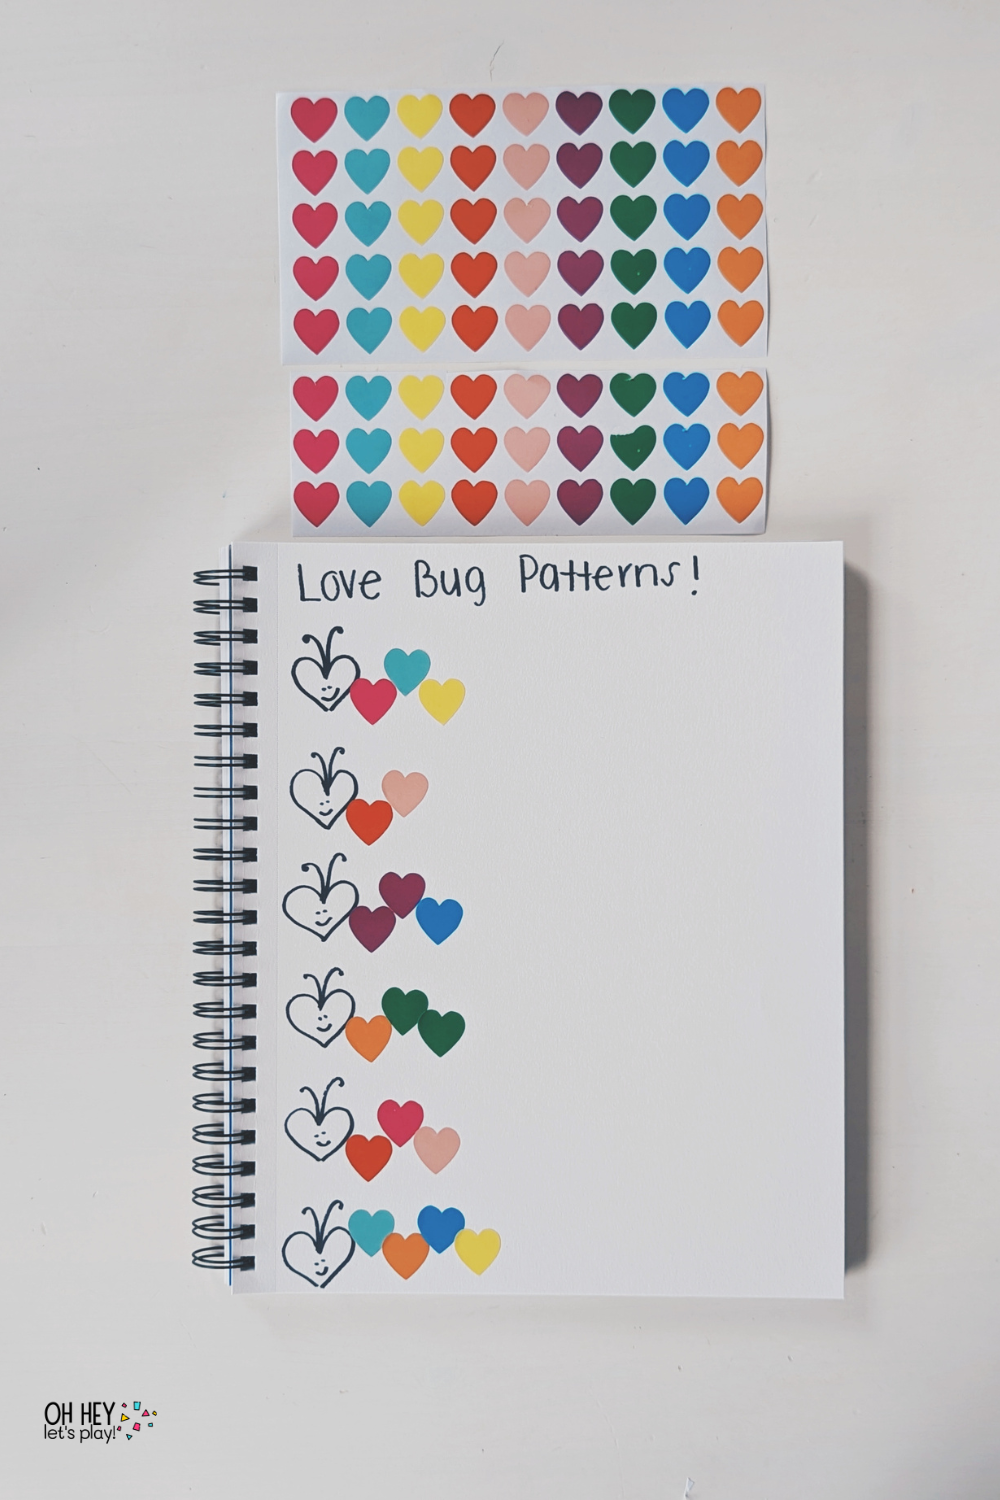 Love Bug Patterns!
OH HEY
let's play!